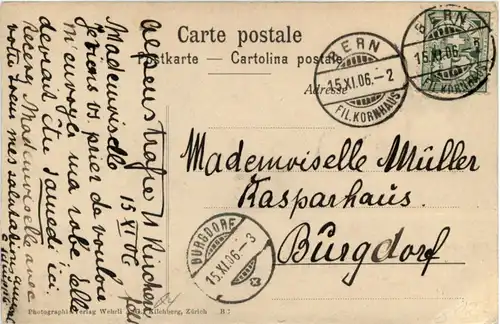 Carte postale
Postkarte — Cartolina postale
Adresse
BERN
15.XI.06.-2
FIL.KORNHAUS
BERN
15.XI.06.
FIL.KORNHAUS
Mademoiselle Müller
Kasparhaus.
Burgdorf.
BURGDORF
15.XI.06.-3
Alpenstrasse 11 Kirchenfeld
15 XI 06
Mademoiselle
Je viens vs prier de vouloir
m'envoyer ma robe. Elle
devrait être samedi ici
Recevez Mademoiselle avec
mes salutations
Photographie Verlag Wehrli A.G., Kilchberg, Zürich